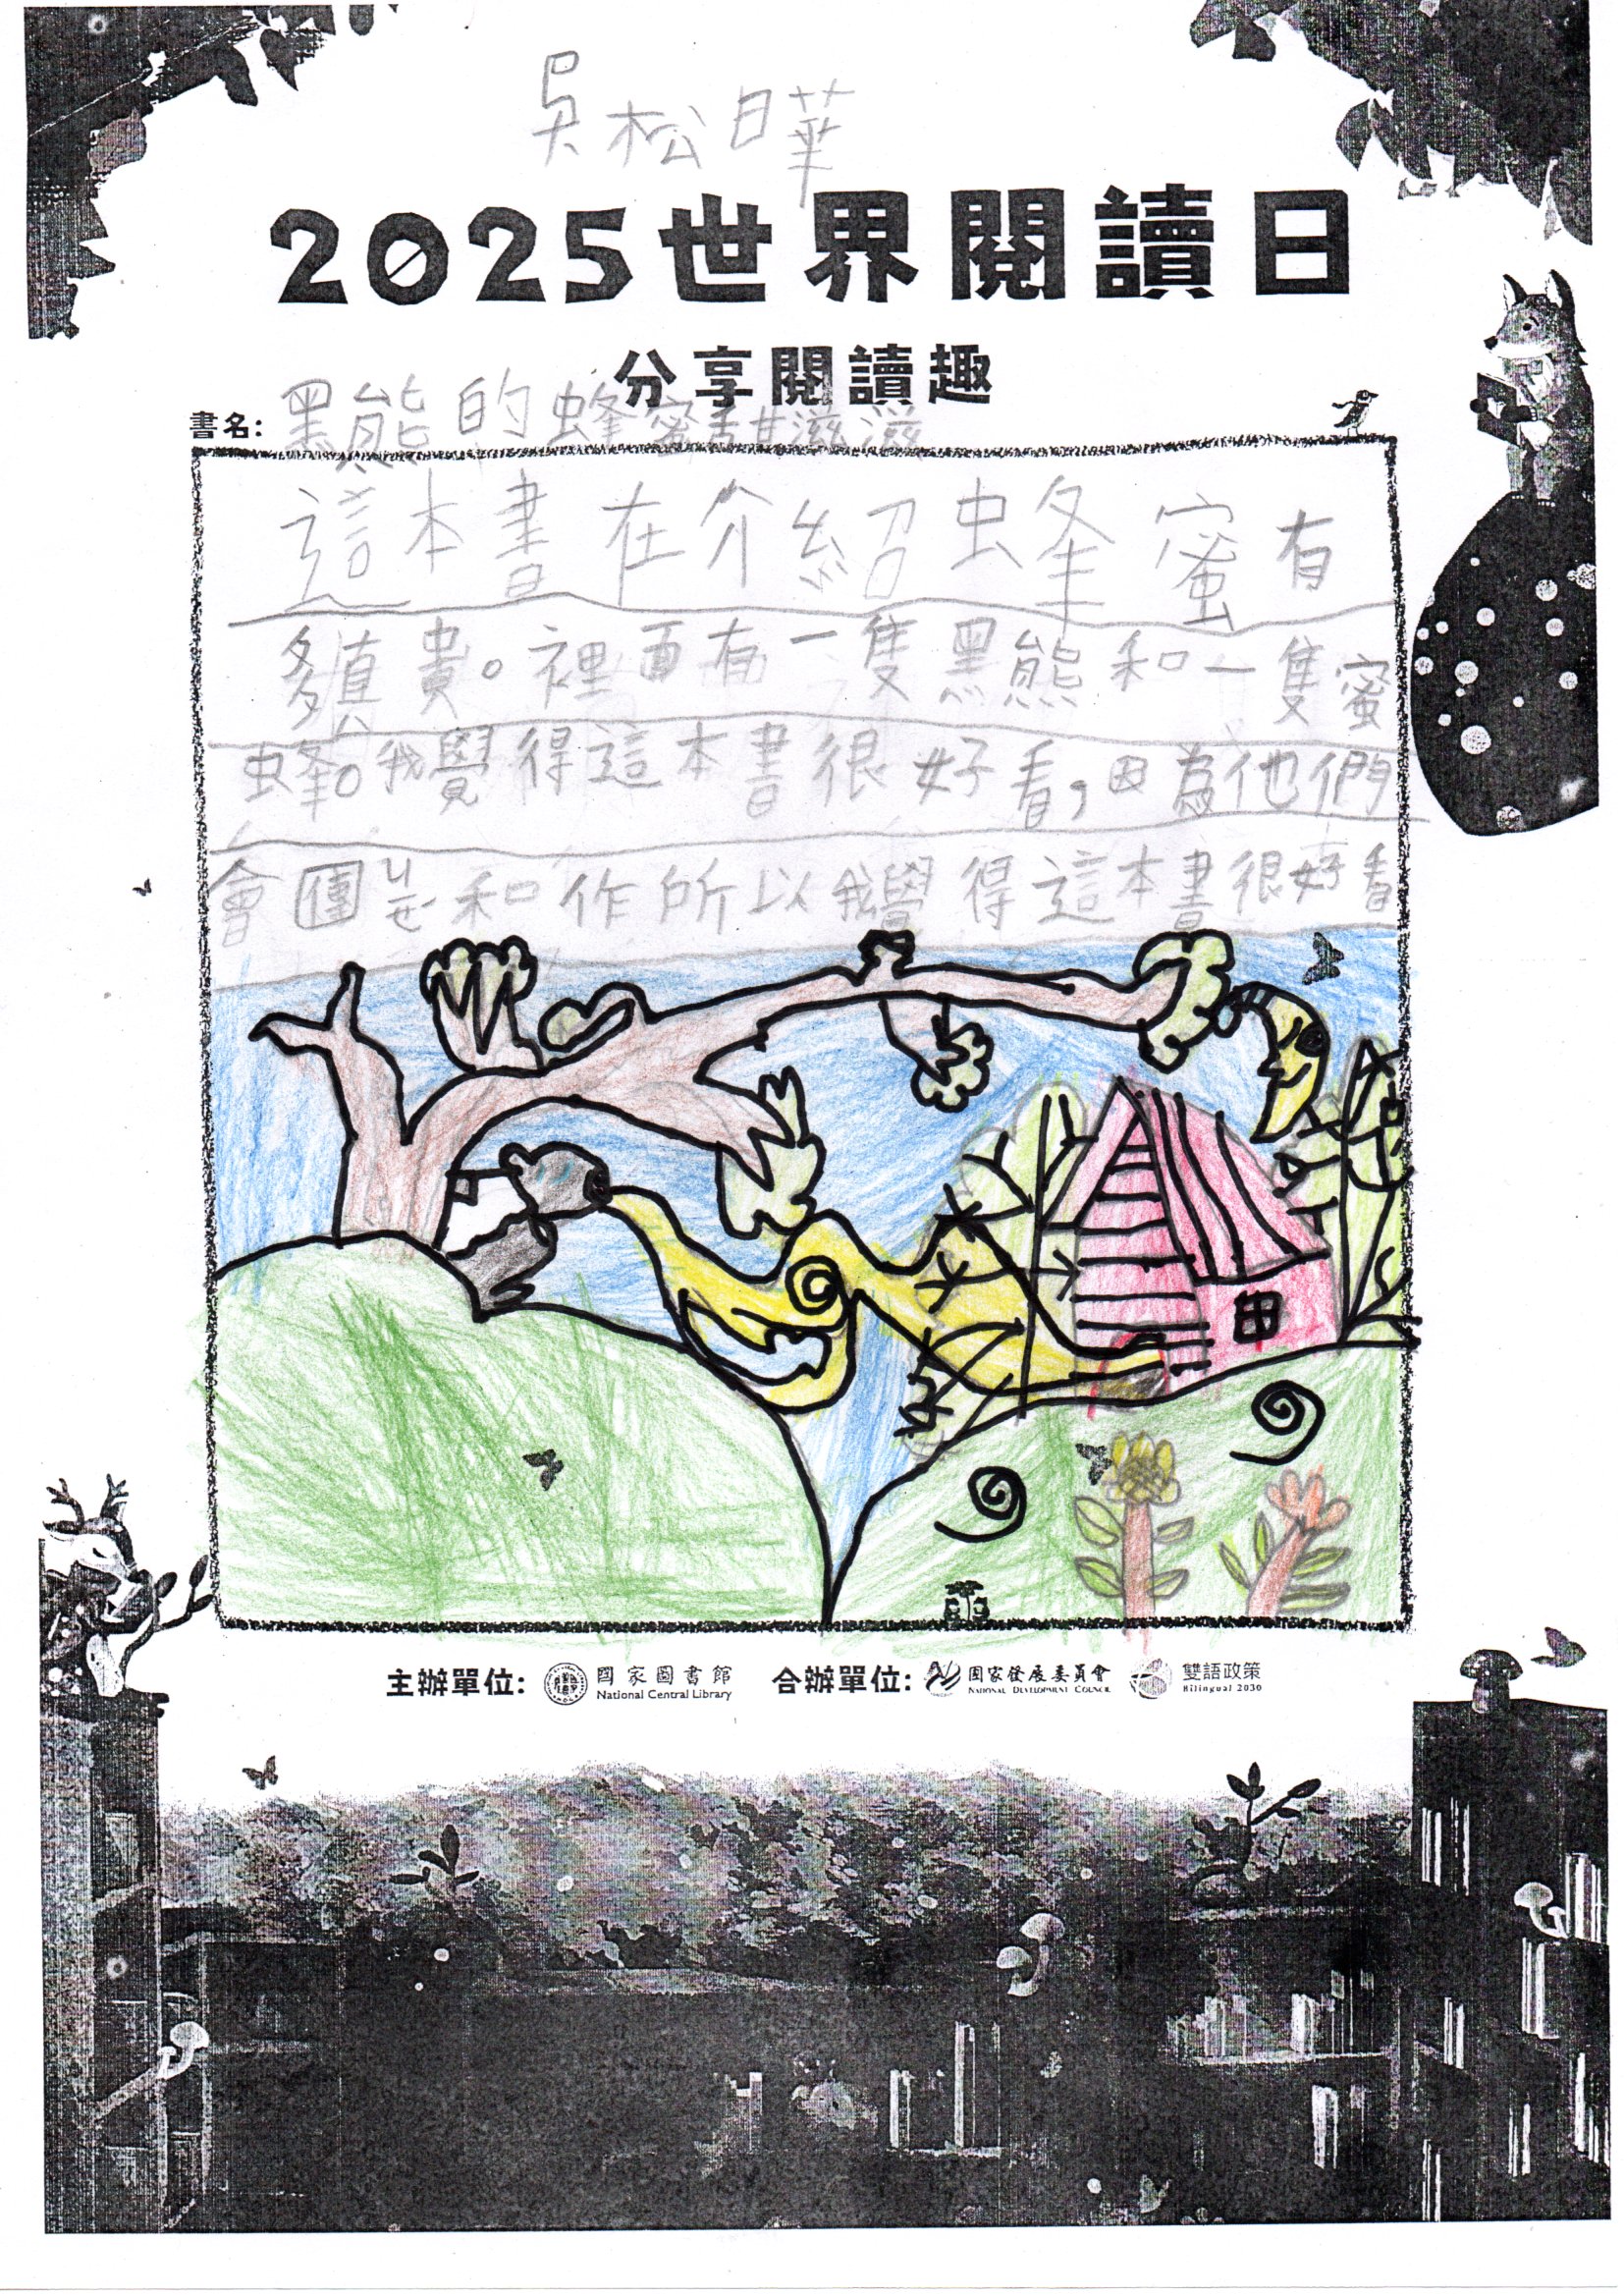 吳松曄
2025世界閱讀日
分享閱讀趣
書名:黑熊的蜂蜜甜滋滋
這本書在介紹蜂蜜有
多真貴。裡面有一隻黑熊和一隻蜜
蜂。我覺得這本書很好看,因為他們
會團ㄐㄧㄝˊ和作所以我覺得這本書很好看
主辦單位: 國家圖書館 National Central Library 合辦單位: 國家發展委員會 NATIONAL DEVELOPMENT COUNCIL 雙語政策 Bilingual 2030